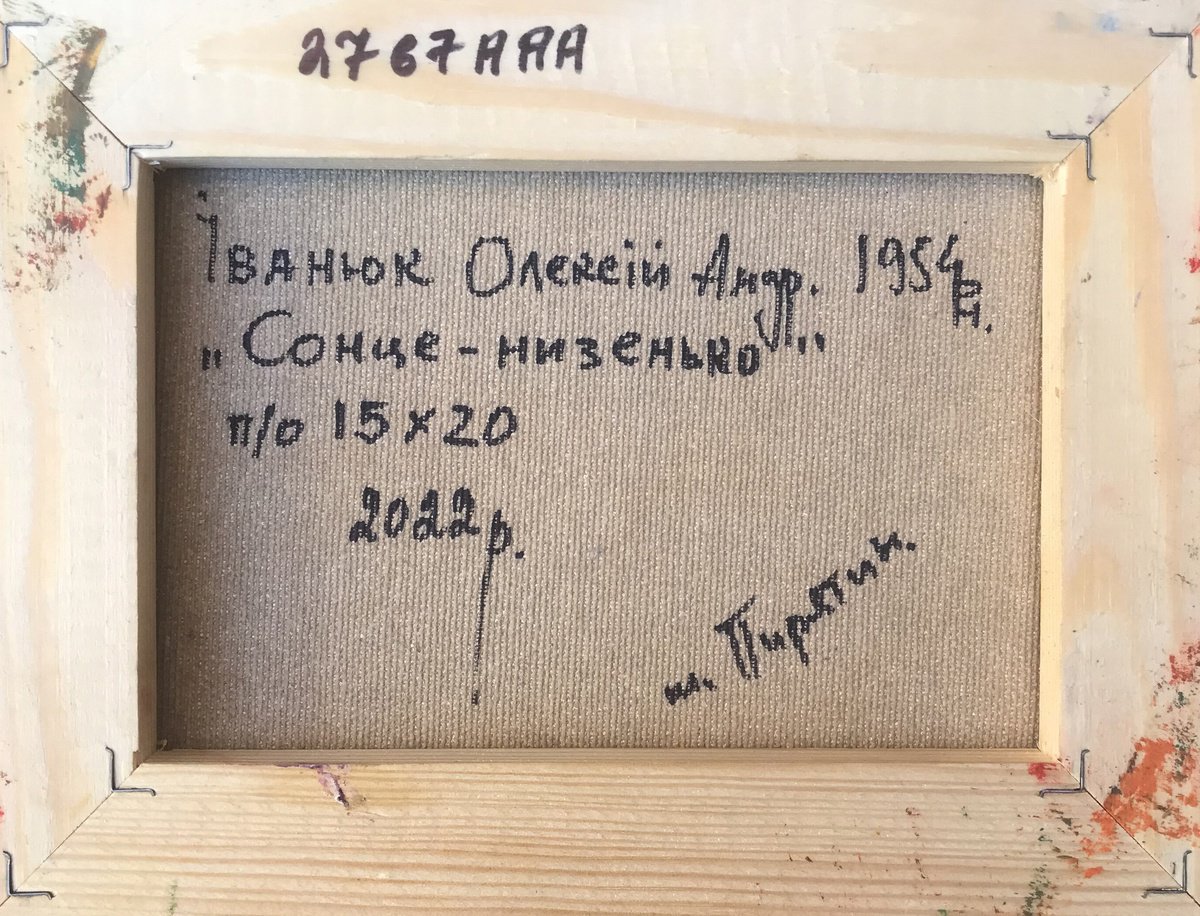 2767AAA
Іванюк Олексій Андр. 1954 р.н.
"Сонце-низенько"
п/о 15х20
2022р.
м. Пирятин.